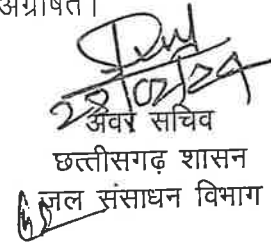 अग्रेषित।
28/02/24
अवर सचिव
छत्तीसगढ़ शासन
जल संसाधन विभाग